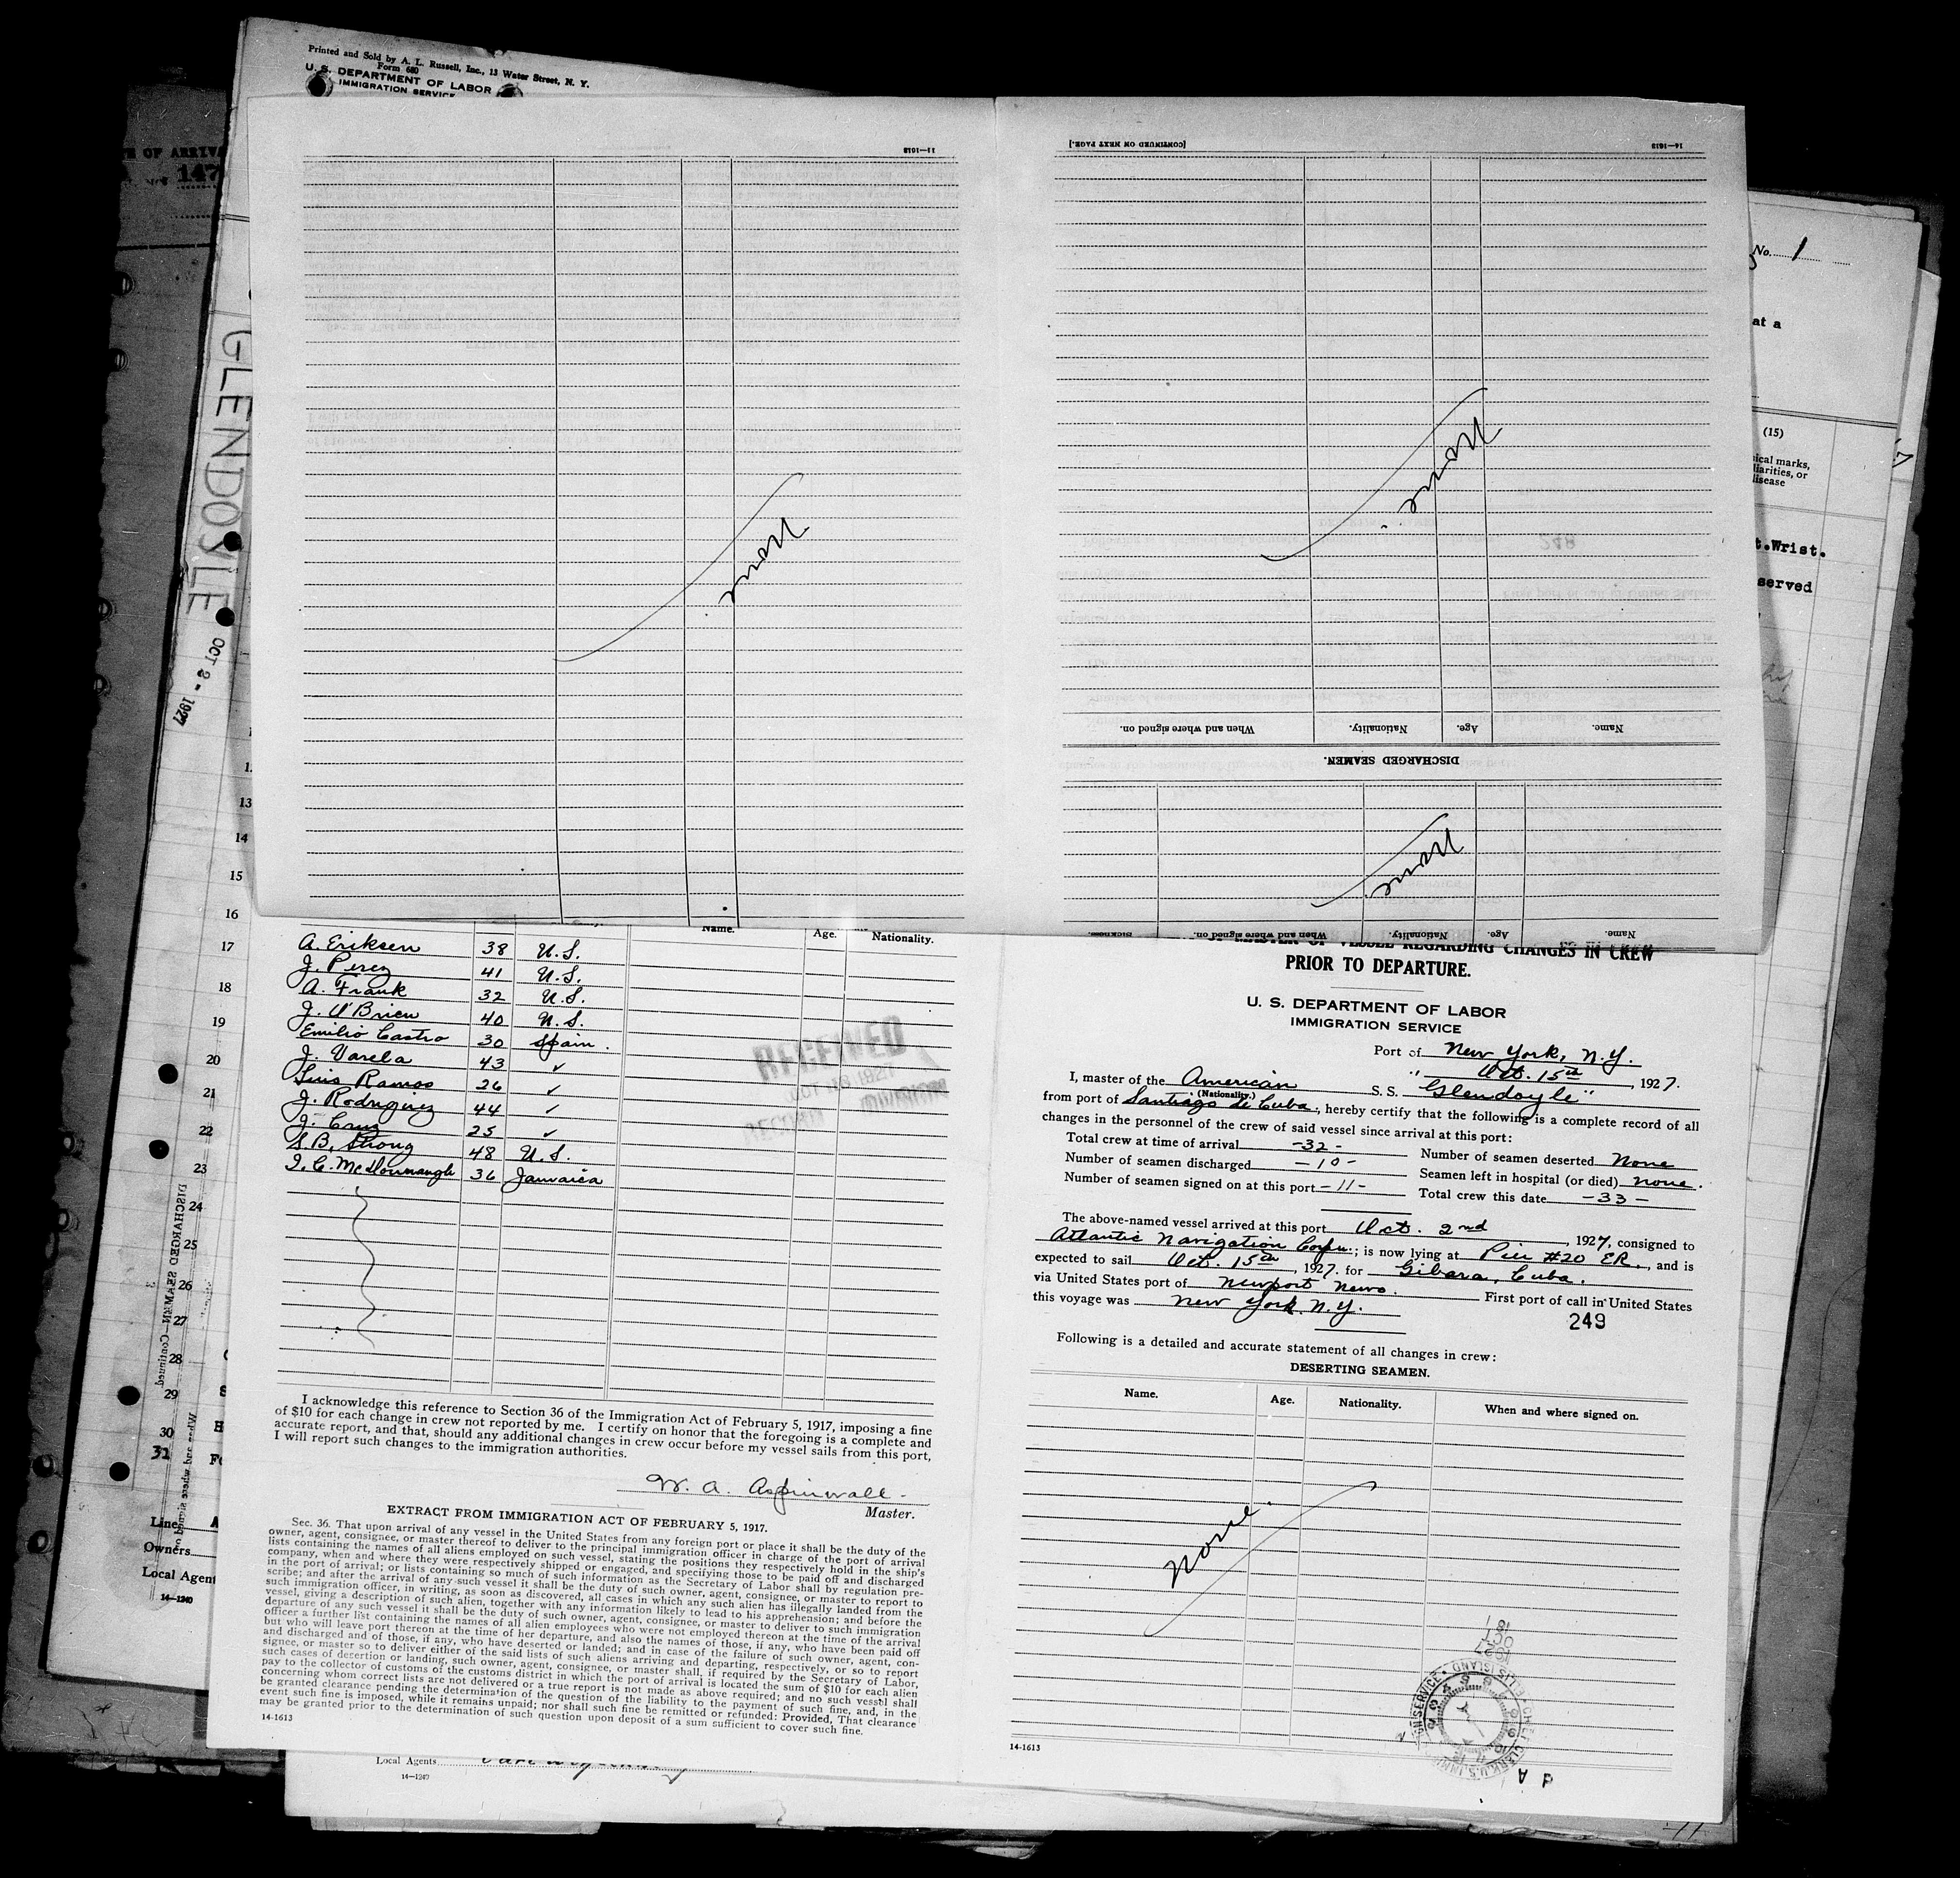 Printed and Sold by A. L. Russell, Inc., 13 Water Street, N. Y.
Form 680
U. S. DEPARTMENT OF LABOR
IMMIGRATION SERVICE
OF ARRIVA
147
GLENDOYLE
OCT 2 - 1927
11—1613
none
[CONTINUED ON NEXT PAGE.]
14—1613
none
When and where signed on. Nationality. Age. Name.
DISCHARGED SEAMEN.
none
Sickness. When and where signed on. Nationality. Age. Name.
No. 1
at a
(15)
ical marks,
liarities, or
disease
t.Wrist.
served
13
14
15
16
17
18
19
20
21
22
23
24
25
26
27
28
29
30
31
DISCHARGED SEAMEN—Continued
When and where signed on.
Line
Owners
Local Agent
14—1240
Name. Age. Nationality.
A. Eriksen 38 U.S.
J. Perez 41 U.S.
A. Frank 32 U.S.
J. O'Brien 40 U.S.
Emilio Castro 30 Spain.
J. Varela 43 ✓
Luis Ramos 26 ✓
J. Rodrigirez 44 ✓
J. Cruz 25 ✓
S.B. Strong 48 U.S.
I. C. McDonnaugh 36 Jamaica
RECEIVED
OCT 1927
RECORD DIVISION
I acknowledge this reference to Section 36 of the Immigration Act of February 5, 1917, imposing a fine
of $10 for each change in crew not reported by me. I certify on honor that the foregoing is a complete and
accurate report, and that, should any additional changes in crew occur before my vessel sails from this port,
I will report such changes to the immigration authorities.
W. A. Aspinwall
Master.
EXTRACT FROM IMMIGRATION ACT OF FEBRUARY 5, 1917.
Sec. 36. That upon arrival of any vessel in the United States from any foreign port or place it shall be the duty of the
owner, agent, consignee, or master thereof to deliver to the principal immigration officer in charge of the port of arrival
lists containing the names of all aliens employed on such vessel, stating the positions they respectively hold in the ship's
company, when and where they were respectively shipped or engaged, and specifying those to be paid off and discharged
in the port of arrival; or lists containing so much of such information as the Secretary of Labor shall by regulation pre-
scribe; and after the arrival of any such vessel it shall be the duty of such owner, agent, consignee, or master to report to
such immigration officer, in writing, as soon as discovered, all cases in which any such alien has illegally landed from the
vessel, giving a description of such alien, together with any information likely to lead to his apprehension; and before the
departure of any such vessel it shall be the duty of such owner, agent, consignee, or master to deliver to such immigration
officer a further list containing the names of all alien employees who were not employed thereon at the time of the arrival
but who will leave port thereon at the time of her departure, and also the names of those, if any, who have been paid off
and discharged and of those, if any, who have deserted or landed; and in case of the failure of such owner, agent, con-
signee, or master so to deliver either of the said lists of such aliens arriving and departing, respectively, or so to report
such cases of desertion or landing, such owner, agent, consignee, or master shall, if required by the Secretary of Labor,
pay to the collector of customs of the customs district in which the port of arrival is located the sum of $10 for each alien
concerning whom correct lists are not delivered or a true report is not made as above required; and no such vessel shall
be granted clearance pending the determination of the question of the liability to the payment of such fine, and, in the
event such fine is imposed, while it remains unpaid; nor shall such fine be remitted or refunded: Provided, That clearance
may be granted prior to the determination of such question upon deposit of a sum sufficient to cover such fine.
14-1613
Local Agents
14—1240
MASTER OF VESSEL REGARDING CHANGES IN CREW
PRIOR TO DEPARTURE.
U. S. DEPARTMENT OF LABOR
IMMIGRATION SERVICE
Port of New York, N.Y.
" Oct. 15th, 1927.
I, master of the American S. S. "Glendoyle"
(Nationality.)
from port of Santiago de Cuba, hereby certify that the following is a complete record of all
changes in the personnel of the crew of said vessel since arrival at this port:
Total crew at time of arrival -32-
Number of seamen deserted None
Number of seamen discharged -10-
Seamen left in hospital (or died) none.
Number of seamen signed on at this port -11-
Total crew this date -33-
The above-named vessel arrived at this port Oct. 2nd, 1927, consigned to
Atlantic Navigation Corpn.; is now lying at Pier #20 ER., and is
expected to sail Oct. 15th, 1927. for Gibara, Cuba.
via United States port of Newport News. First port of call in United States
this voyage was New York. N.Y.
249
Following is a detailed and accurate statement of all changes in crew:
DESERTING SEAMEN.
Name. Age. Nationality. When and where signed on.
none
14-1613